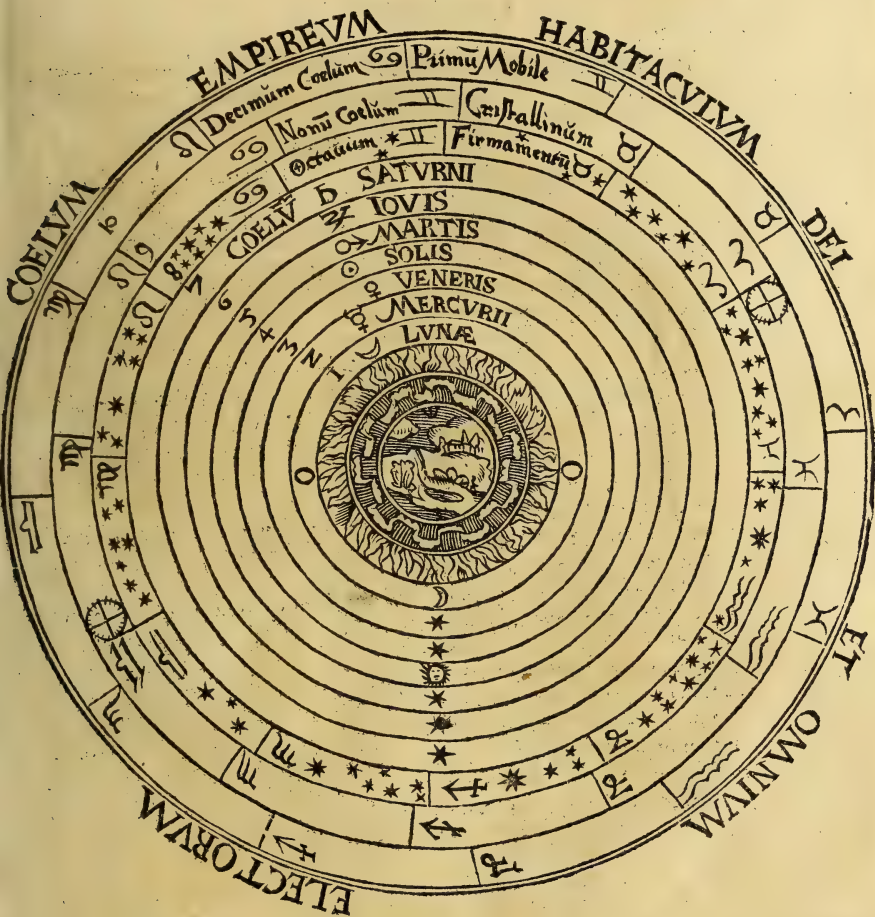 COELVM EMPIREVM HABITACVLVM DEI ET OMNIVM ELECTORVM
Decimum Coelum ♋ Primũ Mobile ♊
Nonũ Coelum ♊ Cristallinum ♉
Octauum ♊ Firmamentũ ♉
7 COELṼ ♄ SATVRNI
6 ♃ IOVIS
5 ♂ MARTIS
4 ☉ SOLIS
3 ♀ VENERIS
2 ☿ MERCVRII
1 ☽ LVNÆ
10
9
8